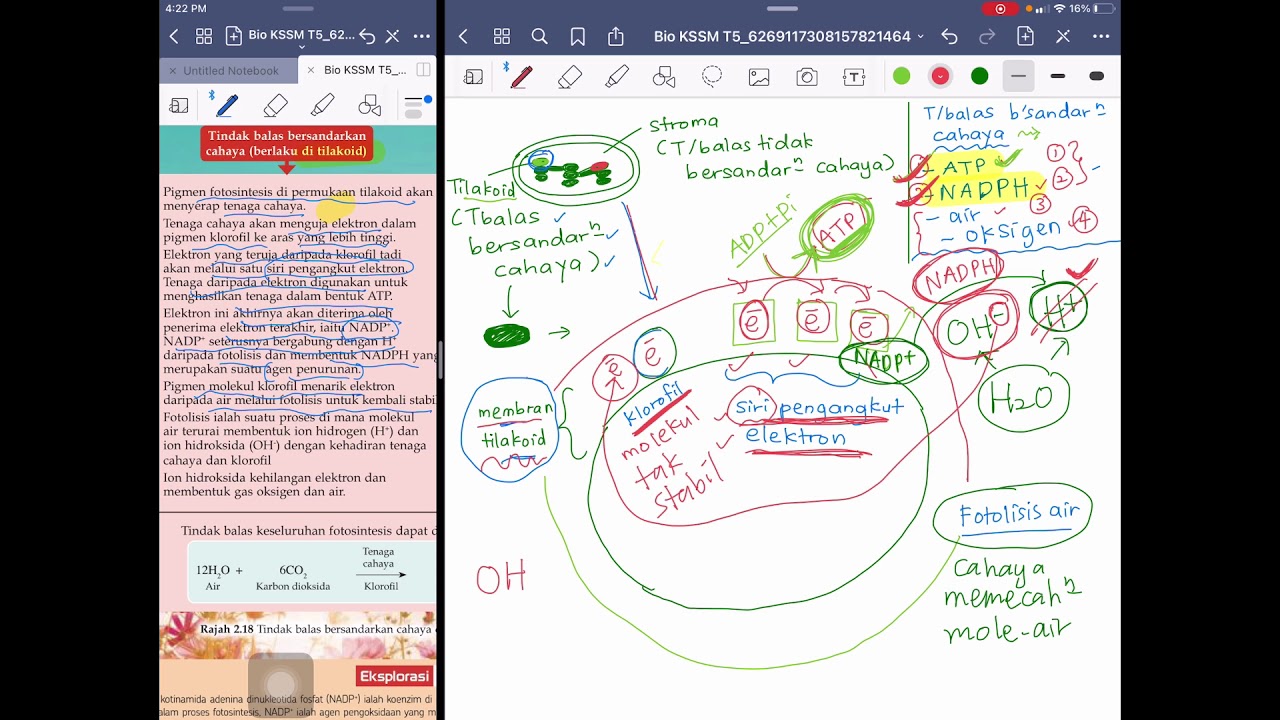 4:22 PM
16%
Bio KSSM T5_62...
Bio KSSM T5_6269117308157821464
Untitled Notebook
Bio KSSM T5_...
Tindak balas bersandarkan
cahaya (berlaku di tilakoid)
Pigmen fotosintesis di permukaan tilakoid akan
menyerap tenaga cahaya.
Tenaga cahaya akan menguja elektron dalam
pigmen klorofil ke aras yang lebih tinggi.
Elektron yang teruja daripada klorofil tadi
akan melalui satu siri pengangkut elektron.
Tenaga daripada elektron digunakan untuk
menghasilkan tenaga dalam bentuk ATP.
Elektron ini akhirnya akan diterima oleh
penerima elektron terakhir, iaitu NADP⁺.
NADP⁺ seterusnya bergabung dengan H⁺
daripada fotolisis dan membentuk NADPH yang
merupakan suatu agen penurunan.
Pigmen molekul klorofil menarik elektron
daripada air melalui fotolisis untuk kembali stabil
Fotolisis ialah suatu proses di mana molekul
air terurai membentuk ion hidrogen (H⁺) dan
ion hidroksida (OH⁻) dengan kehadiran tenaga
cahaya dan klorofil
Ion hidroksida kehilangan elektron dan
membentuk gas oksigen dan air.
Tindak balas keseluruhan fotosintesis dapat d
Tenaga
cahaya
12H₂O + 6CO₂
Air Karbon dioksida Klorofil
Rajah 2.18 Tindak balas bersandarkan cahaya
Eksplorasi
kotinamida adenina dinukleotida fosfat (NADP⁺) ialah koenzim di
alam proses fotosintesis, NADP⁺ ialah agen pengoksidaan yang m
stroma
(T/balas tidak
bersandarⁿ cahaya)
Tilakoid
(Tbalas
bersandarⁿ
cahaya)
T/balas b'sandarⁿ
cahaya
ATP ①
NADPH ②
- air ③
- oksigen ④
ADP+Pi
ATP
NADPH
ē ē ē
ē ē
NADP+
OH⁻
H+
H2O
membran
tilakoid
klorofil
molekul
tak
stabil
siri pengangkut
elektron
Fotolisis air
cahaya
memecahⁿ
mole-air
OH